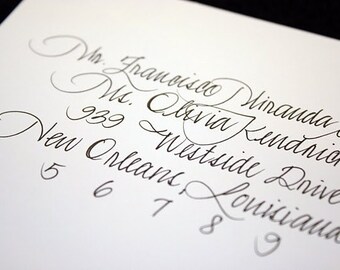 Mr. Francisco Miranda
Ms. Olivia Kendrick
939 Westside Drive
New Orleans, Louisiana
5 6 7 8 9